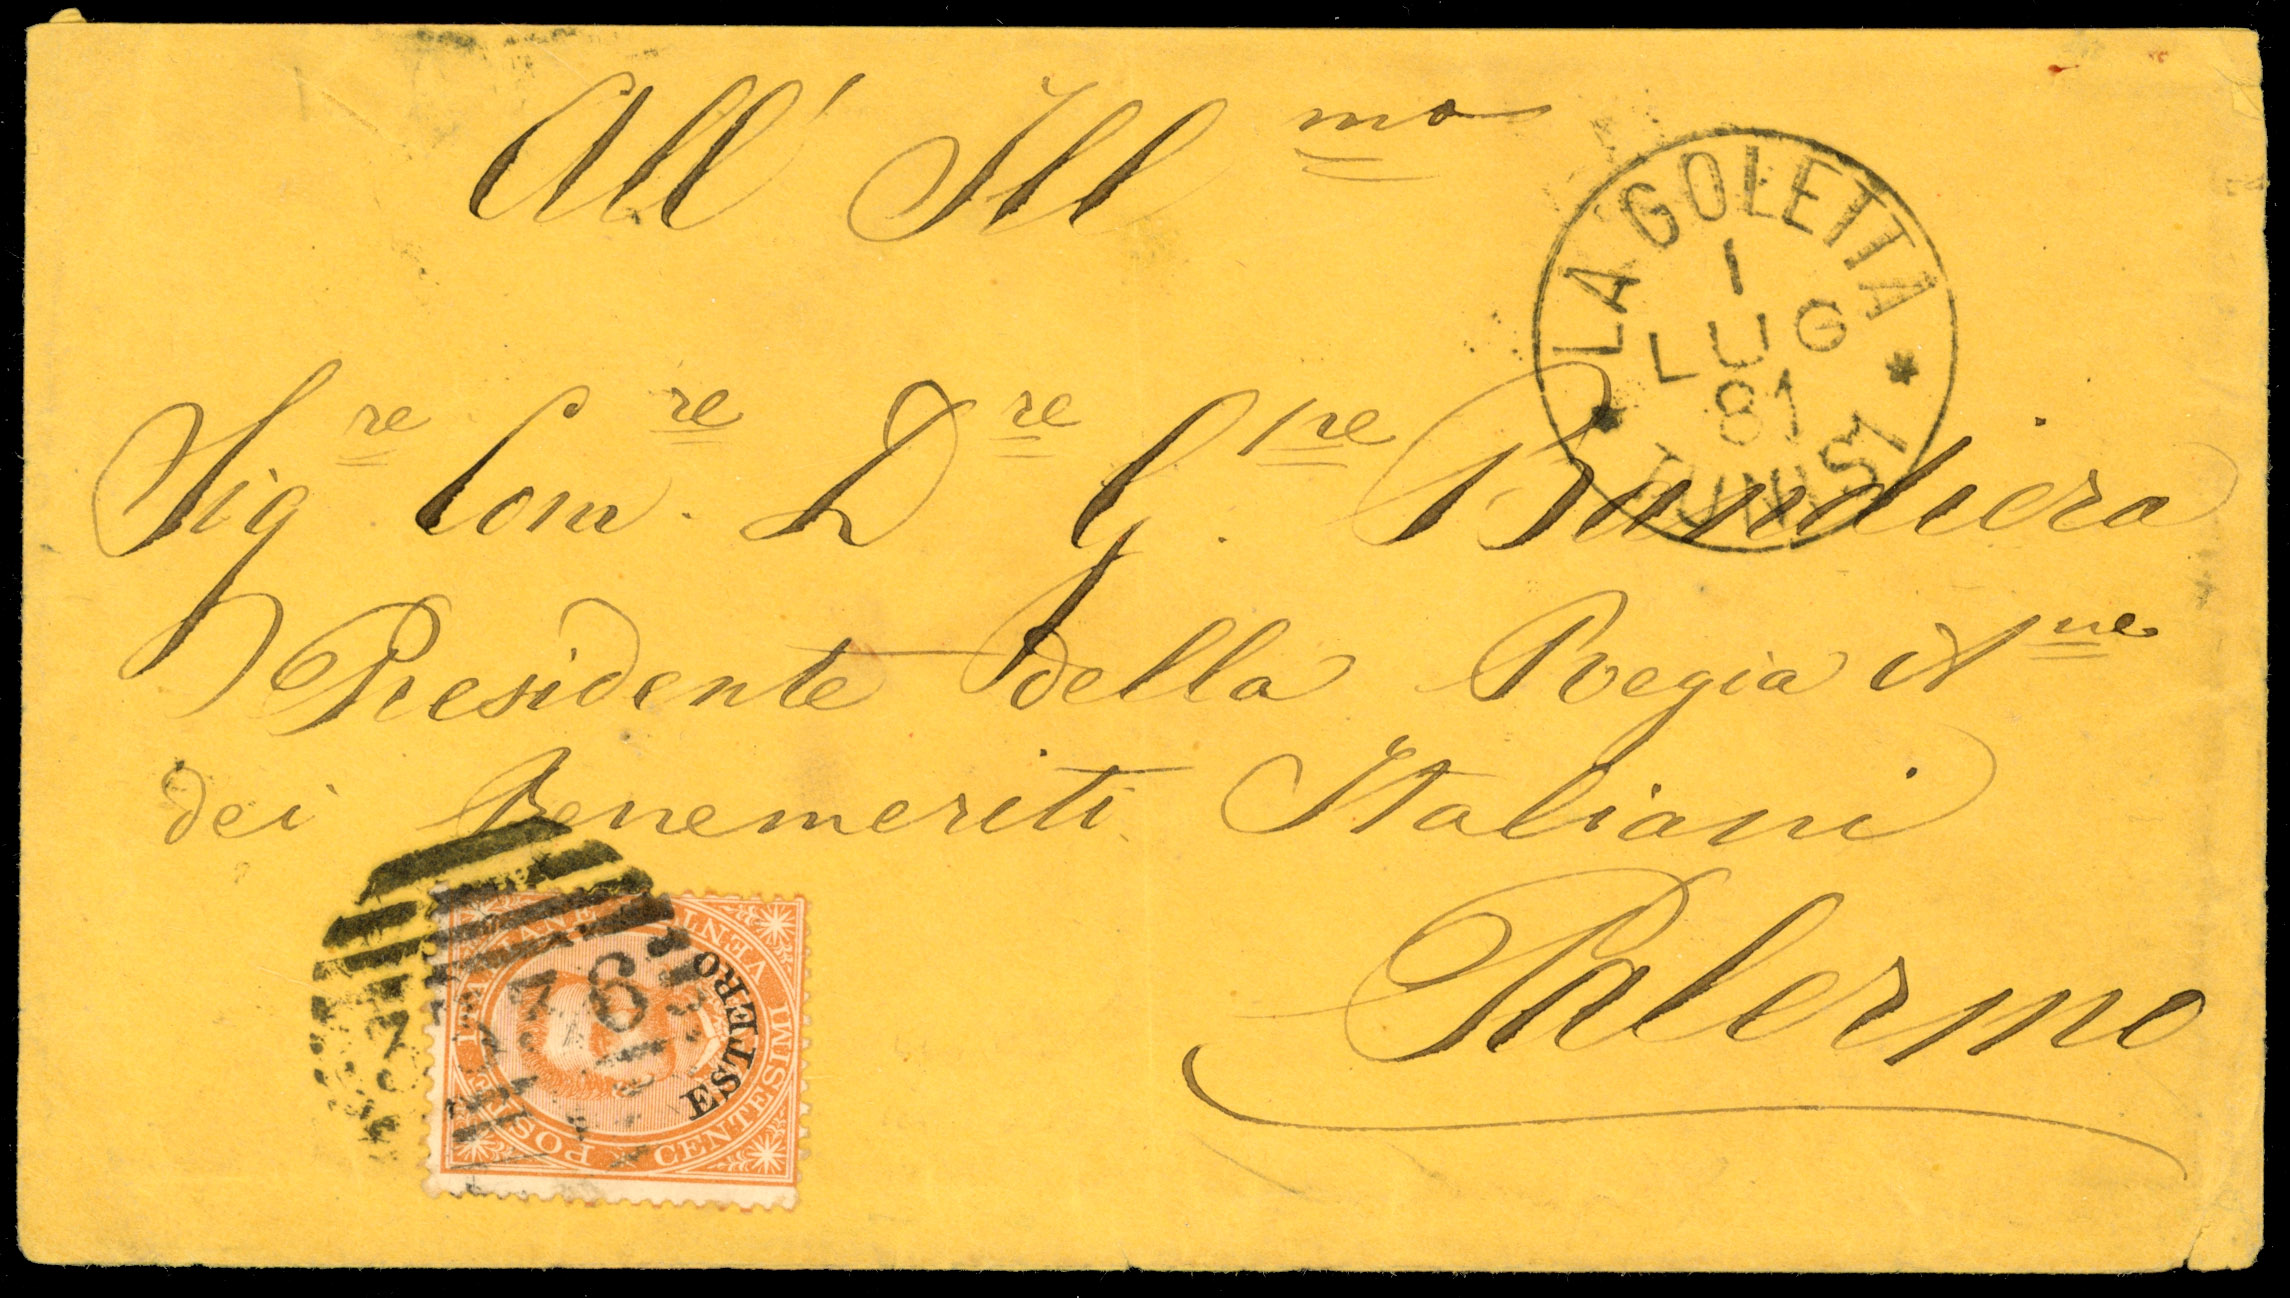 All' Ill mo
LA GOLETTA
1
LUG
81
TUNISI
Sig re Com re D re G pre Bandiera
Presidente della Regia A ne
dei Benemeriti Italiani
Palermo
3336
POSTE ITALIANE
VENTI CENTESIMI
ESTERO